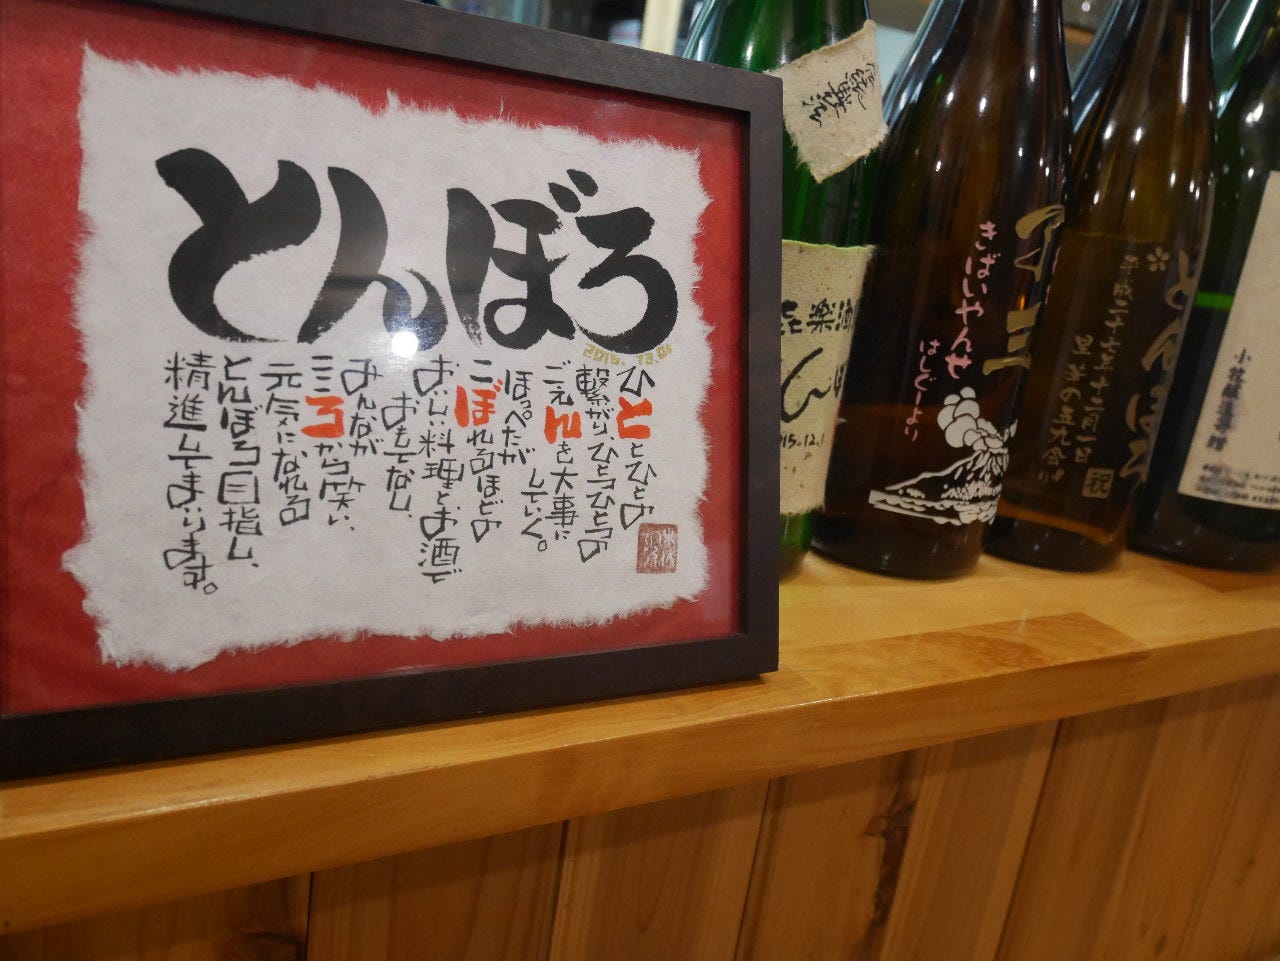 とんぼろ
2015.12.01
ひととひとの
繋がり、ひとつひとつの
ごえんを大事に
していく。
ほっぺたが
こぼれるほどの
おいしい料理と、お酒で
おもてなし、
みんなが
こころから笑い、
元気になれる
とんぼろ目指し、
精進してまいります。
楽酒
15.12.1
きばいやんせ
はしぐーより
とんぼろ
平成二十七年十二月一日
祝